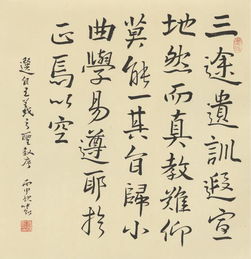 三途遺訓遐宣
地然而真教難仰
莫能一其旨歸小
曲學易遵耶於
正焉以空
選自王羲之聖教序